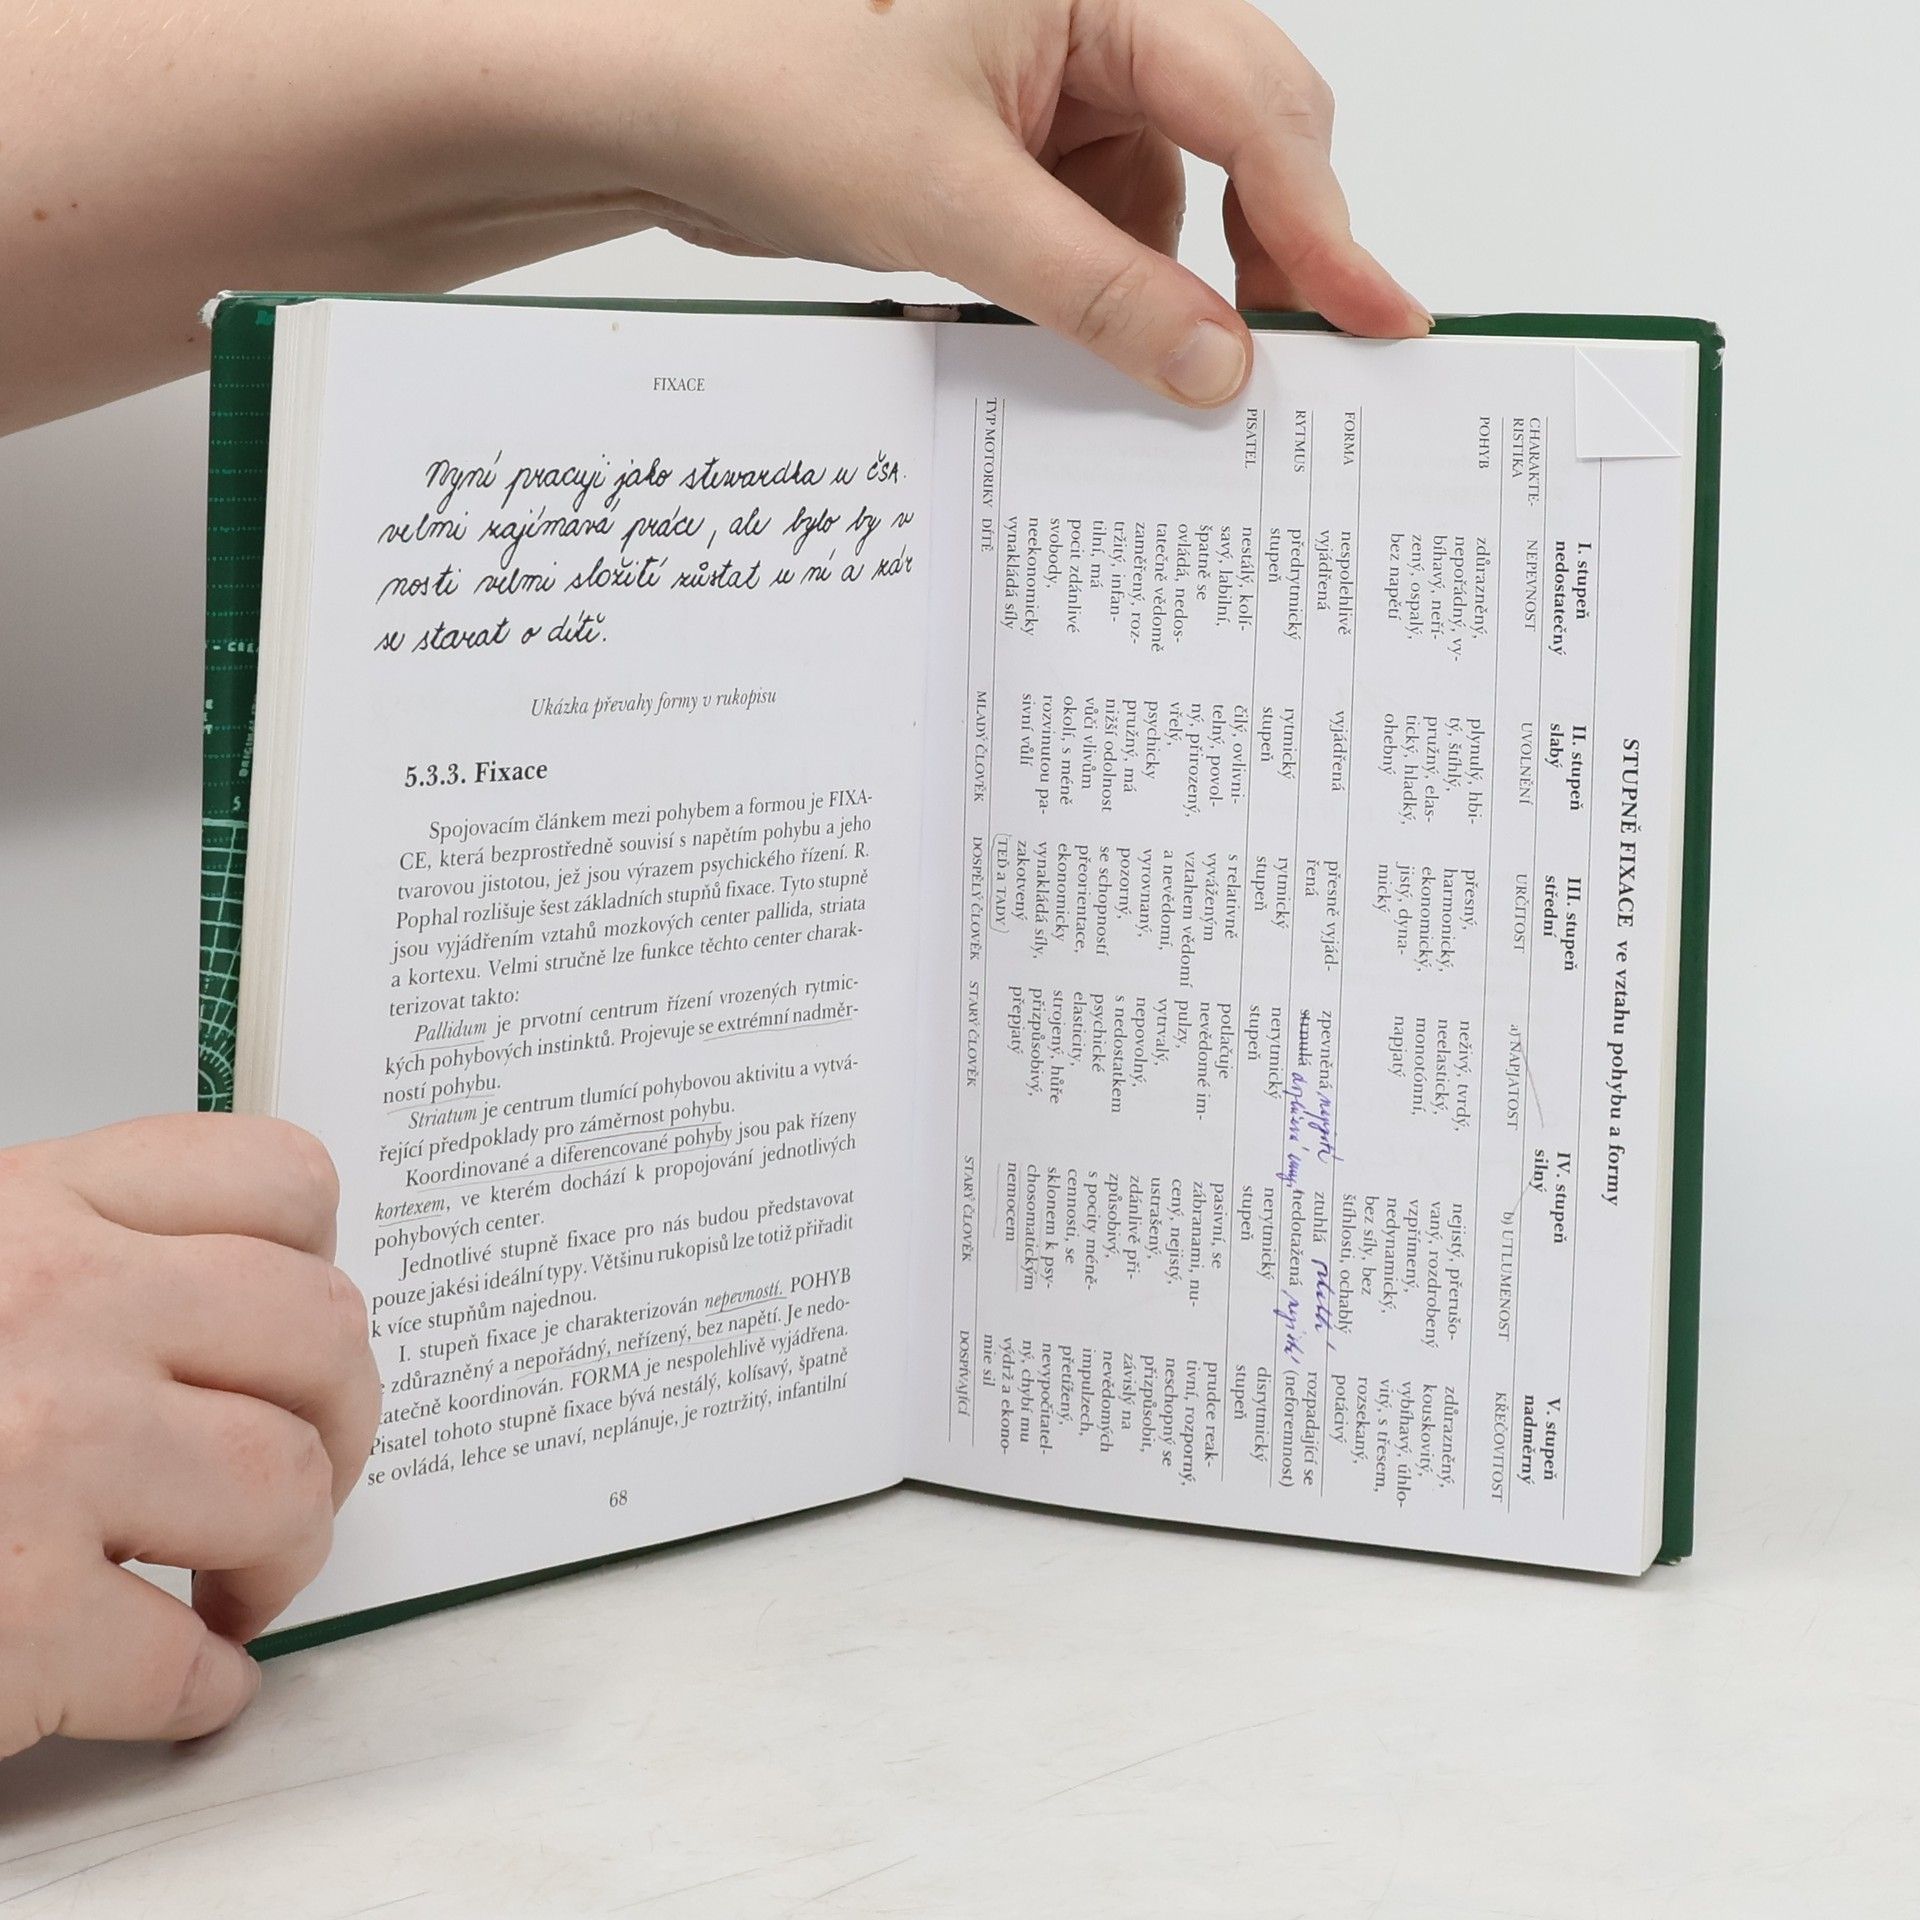 FIXACE
Nyní pracuji jako stewardka u ČSA.
velmi zajímavá práce, ale bylo by v
nosti velmi složité zůstat u ní a zár
se starat o dítě.
Ukázka převahy formy v rukopisu
5.3.3. Fixace
Spojovacím článkem mezi pohybem a formou je FIXA-
CE, která bezprostředně souvisí s napětím pohybu a jeho
tvarovou jistotou, jež jsou výrazem psychického řízení. R.
Pophal rozlišuje šest základních stupňů fixace. Tyto stupně
jsou vyjádřením vztahů mozkových center pallida, striata
a kortexu. Velmi stručně lze funkce těchto center charak-
terizovat takto:
Pallidum je prvotní centrum řízení vrozených rytmic-
kých pohybových instinktů. Projevuje se extrémní nadměr-
ností pohybu.
Striatum je centrum tlumící pohybovou aktivitu a vytvá-
řející předpoklady pro záměrnost pohybu.
Koordinované a diferencované pohyby jsou pak řízeny
kortexem, ve kterém dochází k propojování jednotlivých
pohybových center.
Jednotlivé stupně fixace pro nás budou představovat
pouze jakési ideální typy. Většinu rukopisů lze totiž přiřadit
k více stupňům najednou.
I. stupeň fixace je charakterizován nepevností. POHYB
zdůrazněný a nepořádný, neřízený, bez napětí. Je nedo-
tatečně koordinován. FORMA je nespolehlivě vyjádřena.
Pisatel tohoto stupně fixace bývá nestálý, kolísavý, špatně
se ovládá, lehce se unaví, neplánuje, je roztržitý, infantilní
68
STUPNĚ FIXACE ve vztahu pohybu a formy
I. stupeň
nedostatečný
II. stupeň
slabý
III. stupeň
střední
IV. stupeň
silný
V. stupeň
nadměrný
CHARAKTE-
RISTIKA
NEPEVNOST
UVOLNĚNÍ
URČITOST
a) NAPJATOST
b) UTLUMENOST
KŘEČOVITOST
POHYB
zdůrazněný,
nepořádný, vy-
bíhavý, neří-
zený, ospalý,
bez napětí
plynulý, hbi-
tý, štíhlý,
pružný, elas-
tický, hladký,
ohebný
přesný,
harmonický,
ekonomický,
jistý, dyna-
mický
neživý, tvrdý,
neelastický,
monotónní,
napjatý
nejistý, přerušo-
vaný, rozdrobený
vzpřímený,
nedynamický,
bez síly, bez
štíhlosti, ochablý
zdůrazněný,
kouskovitý,
vybíhavý, úhlo-
vitý, s třesem,
rozsekaný,
potácivý
FORMA
nespolehlivě
vyjádřená
vyjádřená
přesně vyjád-
řená
zpevněná
strnulá
ztuhlá
nedotažená
rozpadající se
(neforemnost)
RYTMUS
předrytmický
stupeň
rytmický
stupeň
rytmický
stupeň
nerytmický
stupeň
nerytmický
stupeň
disrytmický
stupeň
PISATEL
nestálý, kolí-
savý, labilní,
špatně se
ovládá, nedos-
tatečně vědomě
zaměřený, roz-
tržitý, infan-
tilní, má
pocit zdánlivé
svobody,
neekonomicky
vynakládá síly
čilý, ovlivni-
telný, povol-
ný, přirozený,
vřelý,
psychicky
pružný, má
nižší odolnost
vůči vlivům
okolí, s méně
rozvinutou pa-
sivní vůlí
s relativně
vyváženým
vztahem vědomí
a nevědomí,
vyrovnaný,
pozorný,
se schopností
přeorientace,
ekonomicky
vynakládá síly,
zakotvený
TEĎ a TADY
potlačuje
nevědomé im-
pulzy,
vytrvalý,
nepovolný,
s nedostatkem
psychické
elasticity,
strojený, hůře
přizpůsobivý,
přepjatý
pasivní, se
zábranami, nu-
cený, nejistý,
ustrašený,
zdánlivě při-
způsobivý,
s pocity méně-
cennosti, se
sklonem k psy-
chosomatickým
nemocem
prudce reak-
tivní, rozporný,
neschopný se
přizpůsobit,
závislý na
nevědomých
impulzech,
přetížený,
nevypočitatel-
ný, chybí mu
výdrž a ekono-
mie sil
TYP MOTORIKY
DÍTĚ
MLADÝ ČLOVĚK
DOSPĚLÝ ČLOVĚK
STARÝ ČLOVĚK
STARÝ ČLOVĚK
DOSPÍVAJÍCÍ